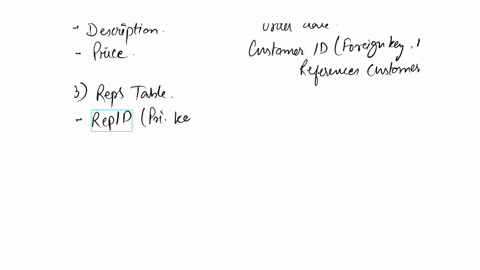 - Description.
- Price.
3) Reps Table.
- RepID (Pri. ke
Customer ID (Foreign key,
References Customer